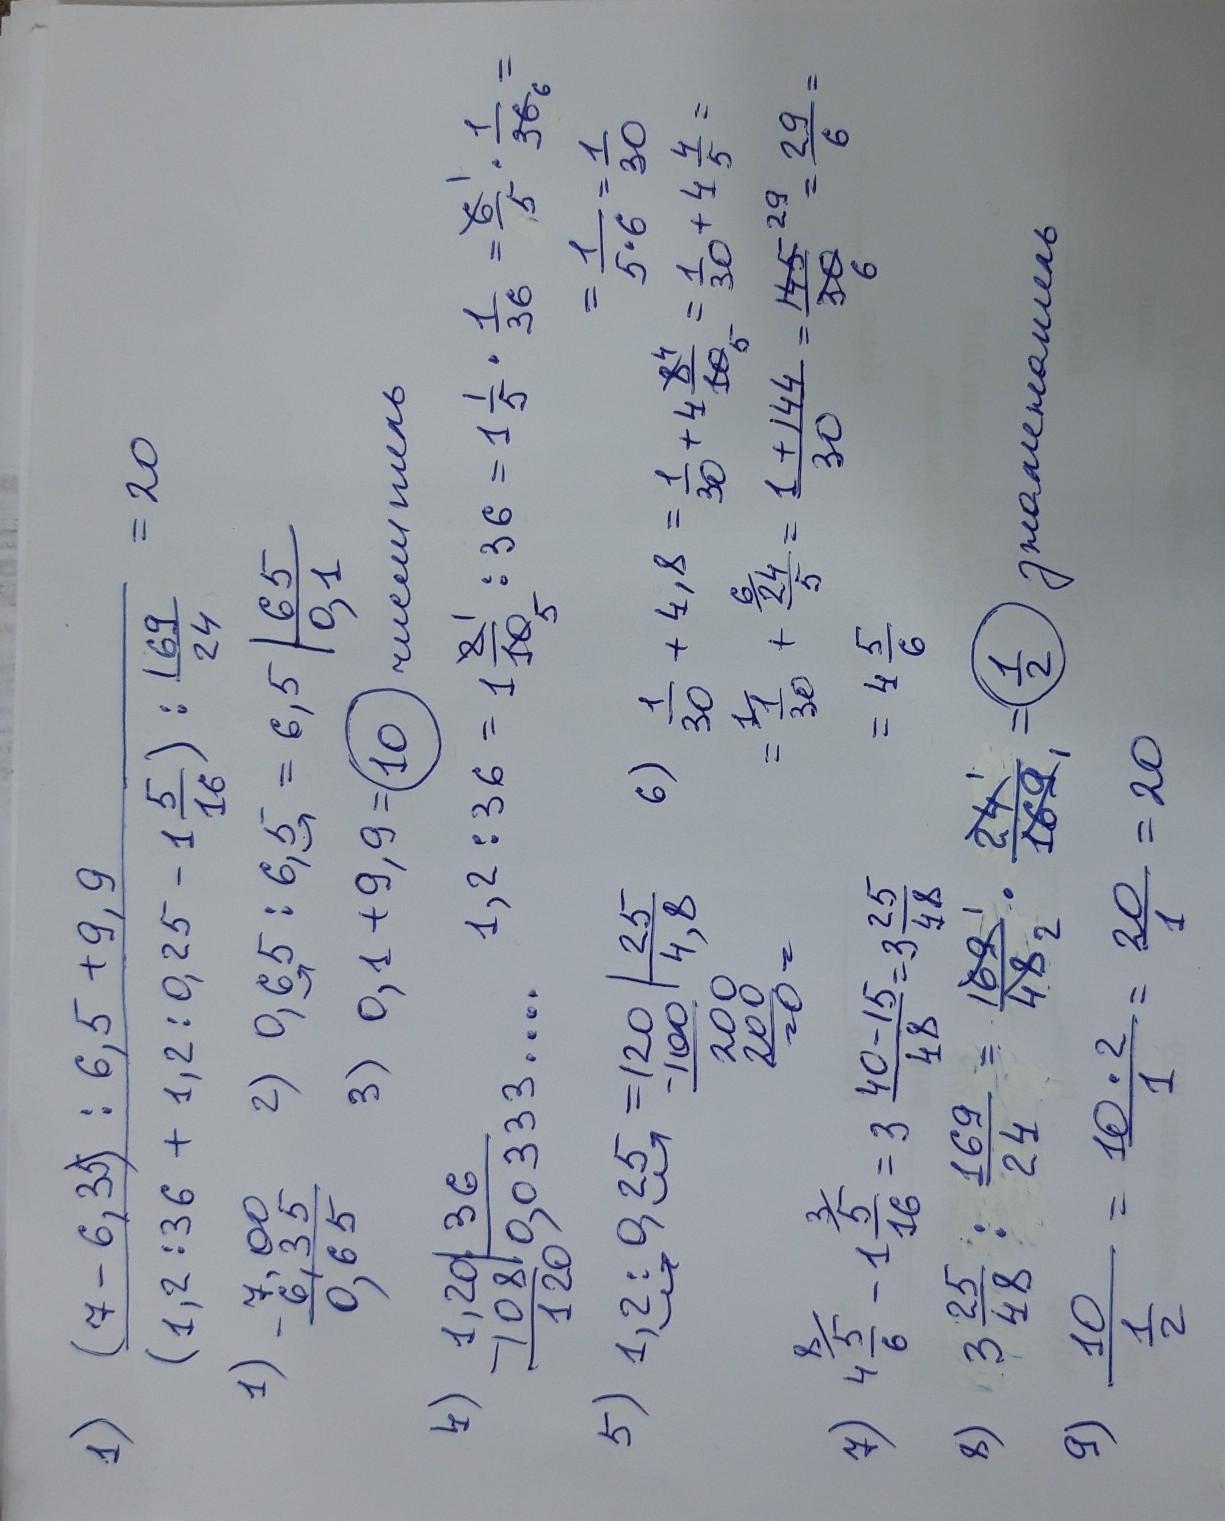 1) (7 - 6,35) : 6,5 + 9,9
(1,2 : 36 + 1,2 : 0,25 - 1 5/16) : 169/24 = 20
1) - 7,00
6,35
0,65
2) 0,65 : 6,5 = 6,5 | 65
0,1
3) 0,1 + 9,9 = 10 числитель
4) 1,20 | 36
-108 | 0,0333....
120
1,2 : 36 = 1 2/10 : 36 = 1 1/5 · 1/36 = 6/5 · 1/36 =
= 1/5·6 = 1/30
5) 1,2 : 0,25 = 120 | 25
-100 | 4,8
200
200
0 =
6) 1/30 + 4,8 = 1/30 + 4 8/10 = 1/30 + 4 4/5 =
= 1/30 + 24/5 = 1 + 144/30 = 145/30 = 29/6 =
= 4 5/6
7) 4 5/6 - 1 5/16 = 3 40-15/48 = 3 25/48
8) 3 25/48 : 169/24 = 169/48 · 24/169 = 1/2 знаменатель
9) 10/1/2 = 10·2/1 = 20/1 = 20